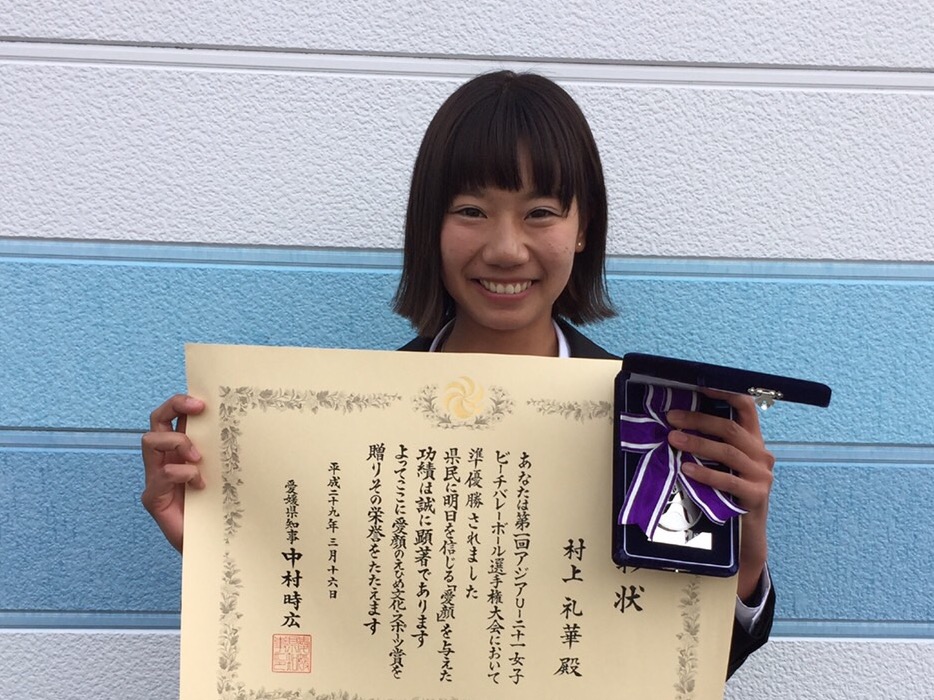 状
村上礼華殿
あなたは第一回アジアU－二十一女子
ビーチバレーボール選手権大会において
準優勝されました
県民に明日を信じる「愛顔」を与えた
功績は誠に顕著であります
よってここに愛顔のえひめ文化・スポーツ賞を
贈りその栄誉をたたえます
平成二十九年三月十六日
愛媛県知事 中村時広